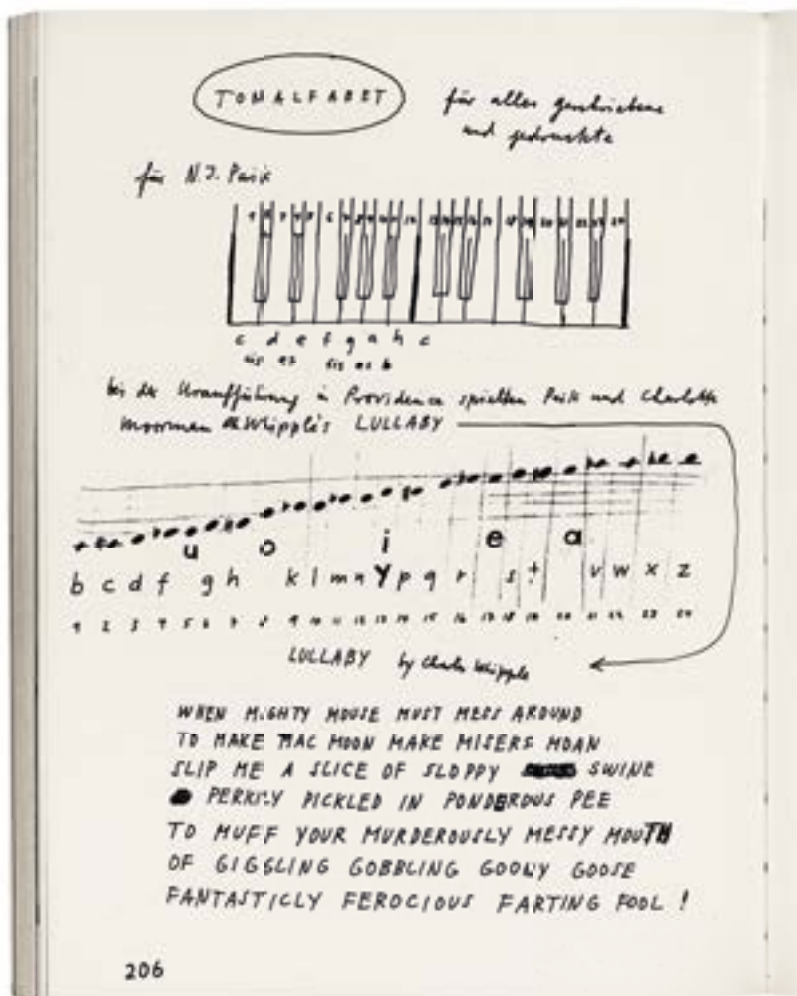 TONALFABET
für alles geschriebene
und gedruckte
für N.J. Paik
c d e f g a h c
cis es fis as b
bei der Uraufführung in Providence spielten Paik und Charlotte
Moorman Whipple's LULLABY
u o i e a
b c d f g h k l m n y p q r s t v w x z
1 2 3 4 5 6 7 8 9 10 11 12 13 14 15 16 17 18 19 20 21 22 23 24
LULLABY by Charles Whipple
WHEN MIGHTY MOUSE MUST MESS AROUND
TO MAKE MAC MOON MAKE MISERS MOAN
SLIP ME A SLICE OF SLOPPY SWINE
PERKILY PICKLED IN PONDEROUS PEE
TO MUFF YOUR MURDEROUSLY MESSY MOUTH
OF GIGGLING GOBBLING GOONY GOOSE
FANTASTICLY FEROCIOUS FARTING FOOL !
206